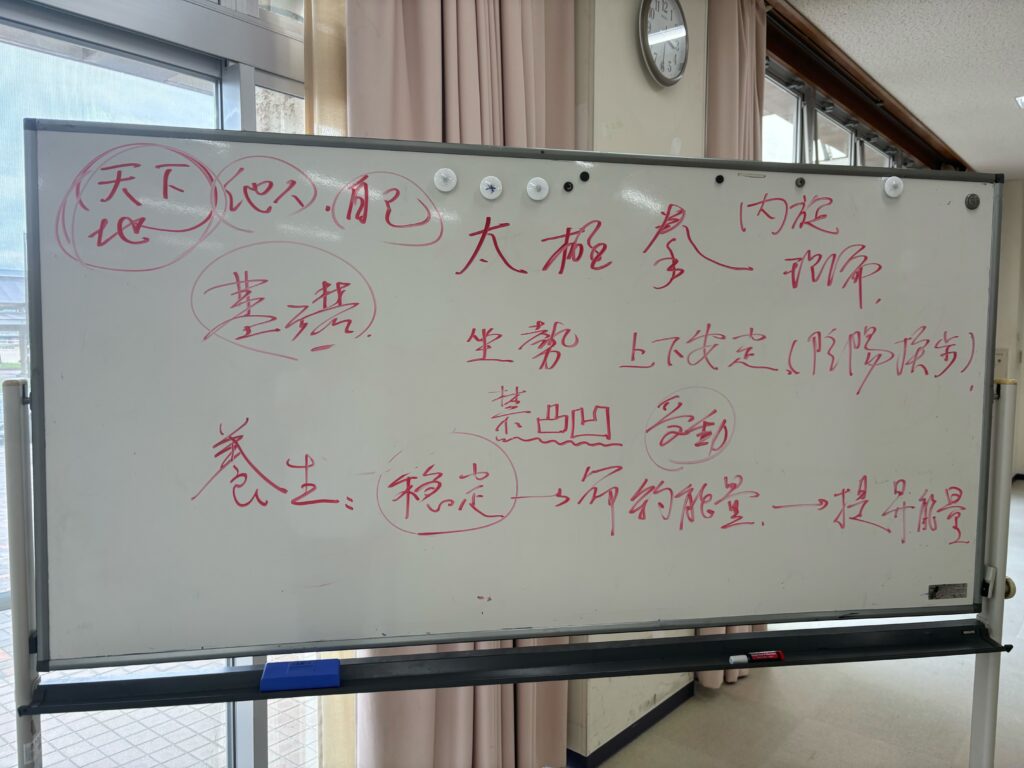 天下地 他人. 自己
太極拳 内旋
基礎.
坐勢 上下安定(陰陽換步)
禁凸凹 受動
養生: 稳定→节约能量.→提昇能量